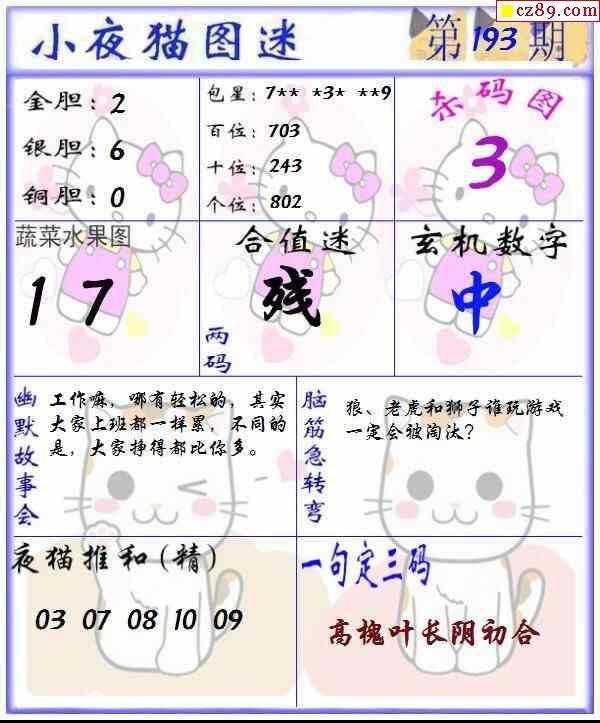 cz89.com
小夜猫图迷
第193期
金胆：2
银胆：6
铜胆：0
包星：7** *3* **9
百位：703
十位：243
个位：802
杀码图
3
蔬菜水果图
17
合值迷
残
两码
玄机数字
中
幽默故事会
工作嘛，哪有轻松的，其实
大家上班都一样累，不同的
是，大家挣得都比你多。
脑筋急转弯
狼、老虎和狮子谁玩游戏
一定会被淘汰？
夜猫推和(精)
03 07 08 10 09
一句定三码
高槐叶长阴初合